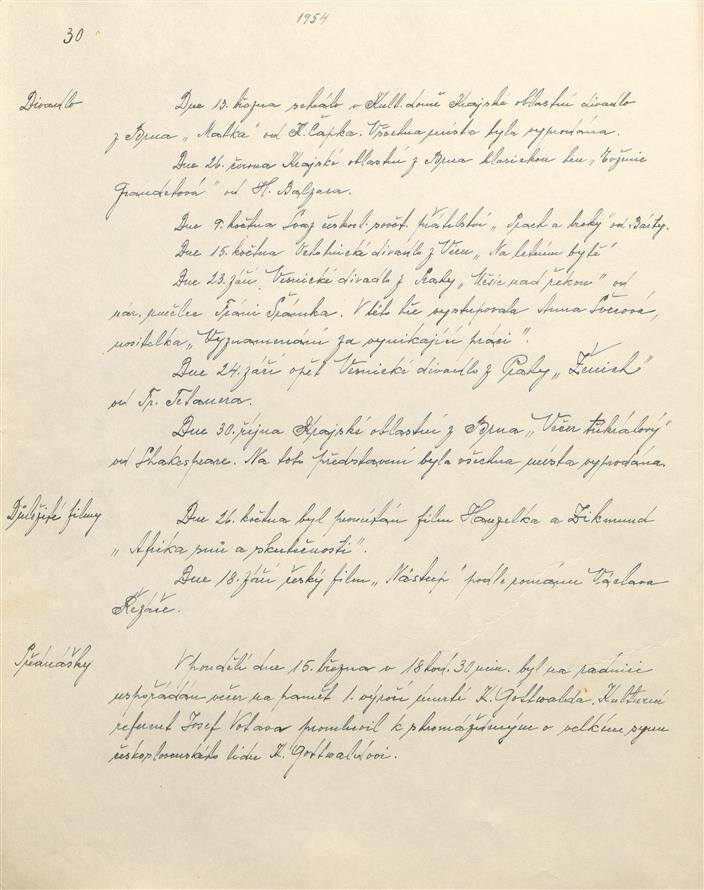 1954
30
Divadlo
Dne 13. března sehrálo v Kult. domě Krajské oblastní divadlo
z Brna „Matka" od K. Čapka. Všechna místa byla vyprodána.
Dne 26. června Krajské oblastní z Brna klasickou hru „Evženie
Grandetová" od H. Balzaca.
Dne 9. května Svaz českosl. sovět. přátelství „Prach a broky" od Bárty.
Dne 15. května divadlo z „Na letním bytě"
Dne 23. září Vesnické divadlo z Prahy „Měsíc nad řekou" od
nár. umělce Fráni Šrámka. V této hře vystupovala Anna
nositelka „Vyznamenání za vynikající práci".
Dne 24. září opět Vesnické divadlo z Prahy „Ženich"
od Fr. Tetauera.
Dne 30. října Krajské oblastní z Brna „Večer tříkrálový"
od Shakespeare. Na toto představení byla všechna místa vyprodána.
Důležité filmy
Dne 26. května byl promítán film Hanzelka a Zikmund
„Afrika snů a skutečnosti".
Dne 18. září český film „Nástup" podle románu Václava
Řezáče.
Přednášky
V pondělí dne 15. března v 18 hod. 30 min. byl na radnici
uspořádán večer na paměť 1. výročí úmrtí K. Gottwalda. Kulturní
referent Josef Votava promluvil k shromážděným o velkém synu
československého lidu K. Gottwaldovi.